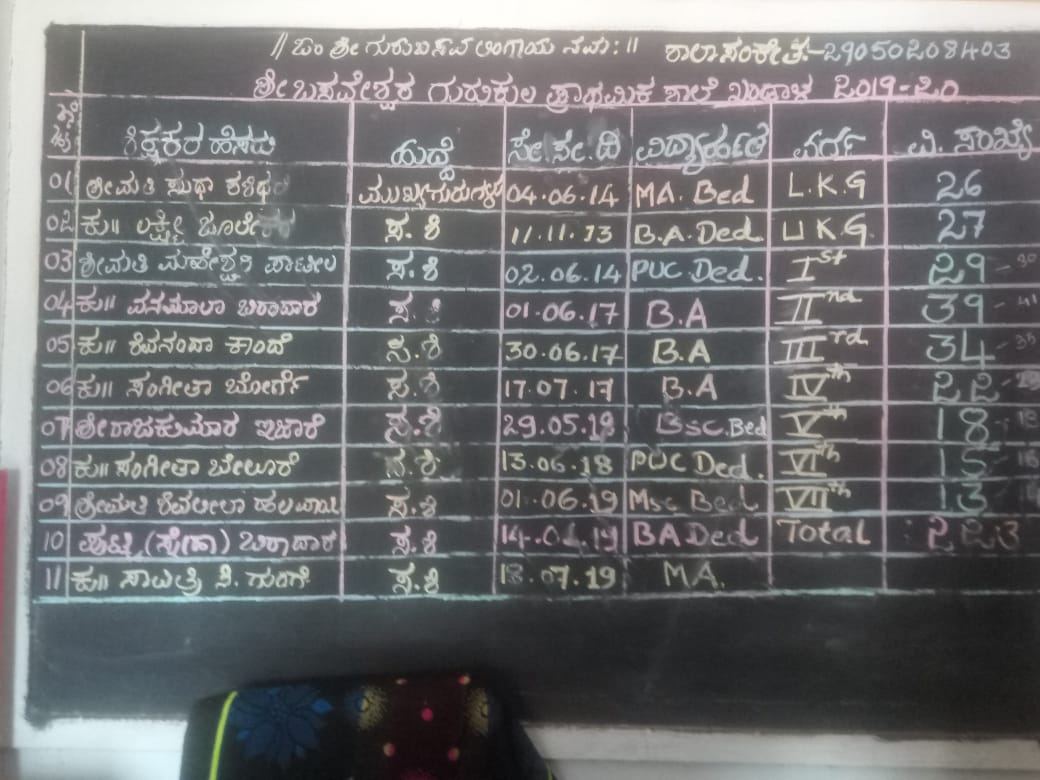 || ಓಂ ಶ್ರೀ ಗುರುಬಸವ ಲಿಂಗಾಯ ನಮಃ || ಶಾಲಾ ಸಂಕೇತ:-29050208403
ಶ್ರೀ ಬಸವೇಶ್ವರ ಗುರುಕುಲ ಪ್ರಾಥಮಿಕ ಶಾಲೆ 2019-20
ಶಿಕ್ಷಕರ ಹೆಸರು ಹುದ್ದೆ ಸೇ.ಸೇ.ದಿ ವಿದ್ಯಾರ್ಹತೆ ವರ್ಗ ವಿ. ಸಂಖ್ಯೆ
01 ಶ್ರೀಮತಿ ಸುಧಾ ಮುಖ್ಯಗುರುಗಳು 04.06.14 MA. Bed L.K.G 26
02 ಕು|| ಲಕ್ಷ್ಮೀ ಸ.ಶಿ 11.11.13 B.A. Ded U K.G. 27
03 ಶ್ರೀಮತಿ ಮಹೇಶ್ವರಿ ಪಾಟೀಲ ಸ.ಶಿ 02.06.14 PUC Ded. Ist 29
04 ಕು|| ವನಮಾಲಾ ಬಿರಾದಾರ ಸ.ಶಿ 01.06.17 B.A IInd 39 - 41
05 ಕು|| ಶಿವನಂದಾ ಕಾಂದೆ ಸ.ಶಿ 30.06.17 B.A IIIrd 34 - 35
06 ಕು|| ಸಂಗೀತಾ ಬೋರ್ಗೆ ಸ.ಶಿ 17.07.17 B.A IVth 22
07 ಶ್ರೀ ರಾಜಕುಮಾರ ಇಜಾರೆ ಸ.ಶಿ 29.05.19 Bsc.Bed Vth 18
08 ಕು|| ಸಂಗೀತಾ ಬೇಲೂರೆ ಸ.ಶಿ 13.06.18 PUC Ded. VIth 15
09 ಶ್ರೀಮತಿ ಶಿವಲೀಲಾ ಸ.ಶಿ 01.06.19 Msc Bed VIIth 13
10 (ಸ್ನೇಹಾ) ಬಿರಾದಾರ ಸ.ಶಿ BA Ded Total : 223
11 ಕು|| ಸಾವಿತ್ರಿ ಸಿ. ಗುಂಗೆ ಸ.ಶಿ 18.07.19 MA.